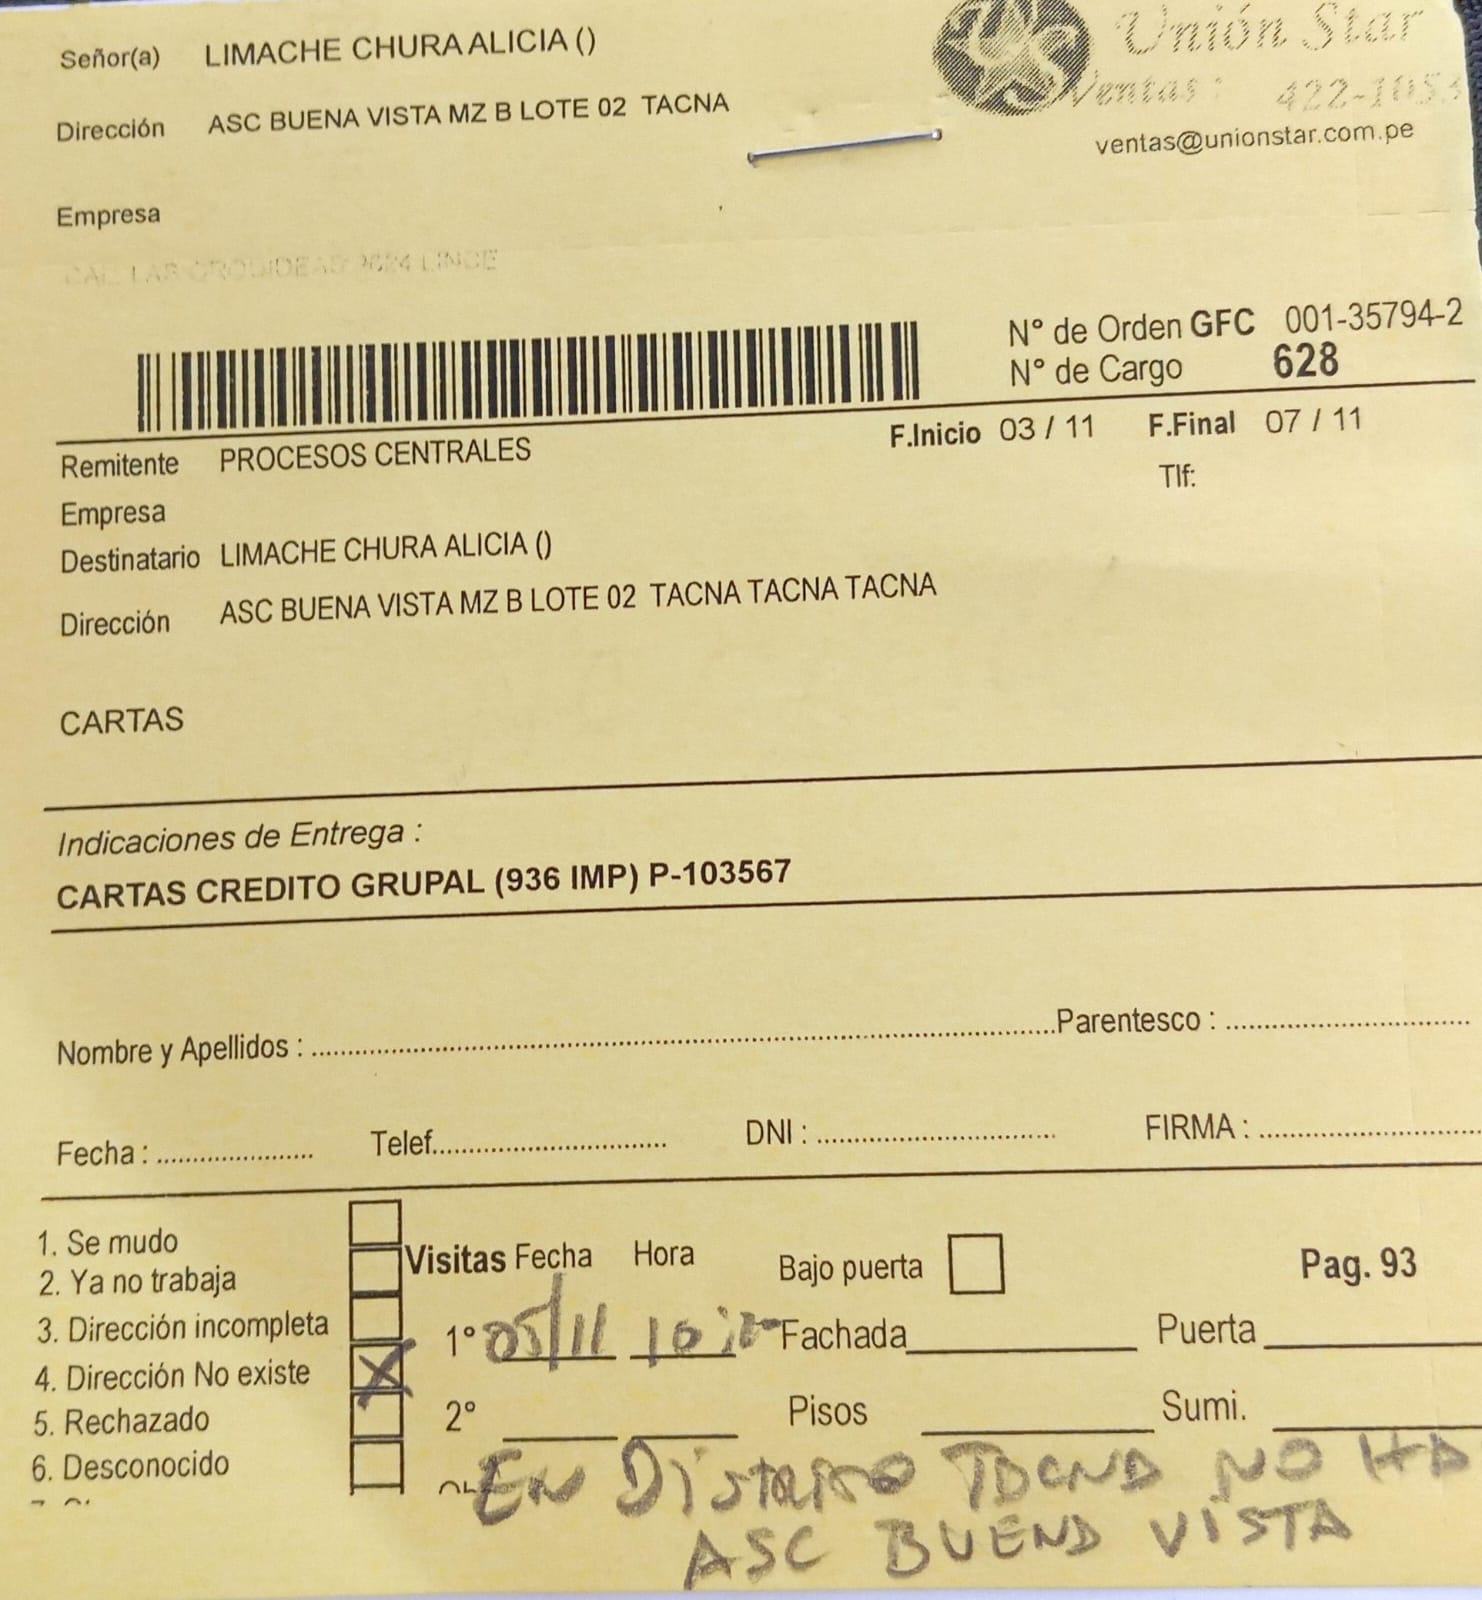 Señor(a) LIMACHE CHURA ALICIA ()
Unión Star
Ventas : 422-1053
Dirección ASC BUENA VISTA MZ B LOTE 02 TACNA
ventas@unionstar.com.pe
Empresa
CAL. LAS ORQUIDEAS 2624 LINCE
N° de Orden GFC 001-35794-2
N° de Cargo 628
F.Inicio 03 / 11 F.Final 07 / 11
Remitente PROCESOS CENTRALES
Tlf:
Empresa
Destinatario LIMACHE CHURA ALICIA ()
Dirección ASC BUENA VISTA MZ B LOTE 02 TACNA TACNA TACNA
CARTAS
Indicaciones de Entrega :
CARTAS CREDITO GRUPAL (936 IMP) P-103567
Nombre y Apellidos : Parentesco :
Fecha : Telef. DNI : FIRMA :
1. Se mudo
2. Ya no trabaja
3. Dirección incompleta
4. Dirección No existe X
5. Rechazado
6. Desconocido
Visitas Fecha Hora Bajo puerta Pag. 93
1° 05/11 10: Fachada Puerta
2° Pisos Sumi.
EN DISTRITO TACNA NO HA
ASC BUENA VISTA